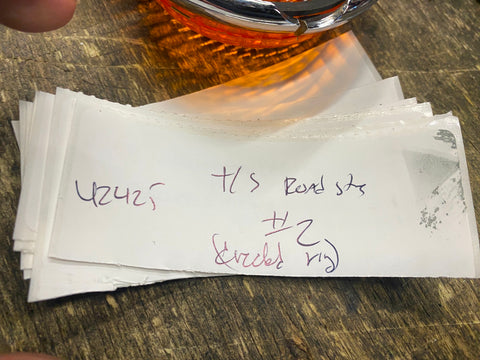 42425 T/S Road sts
#2
(cracked rim)